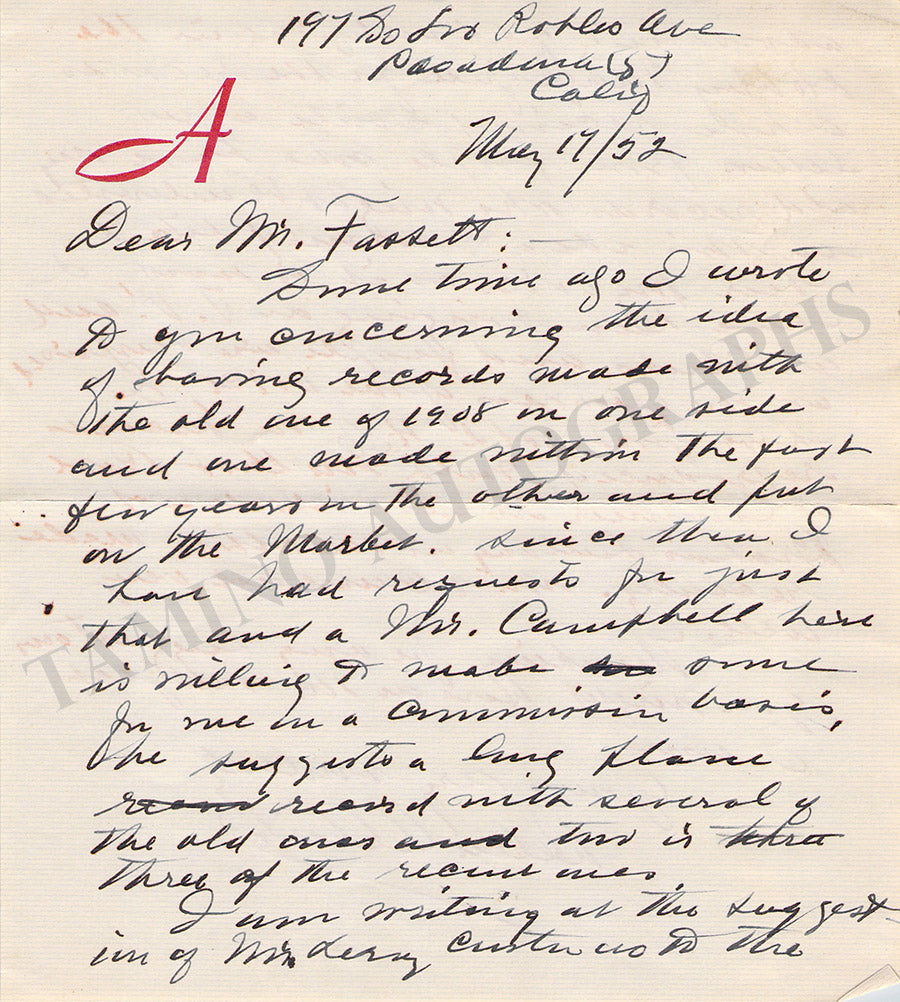 197 So Los Robles Ave
Pasadena (5)
Calif
May 17/52
A
Dear Mr. Fassett: —
Some time ago I wrote
to you concerning the idea
of having records made with
the old one of 1908 on one side
and one made within the past
few years on the other and put
on the Market. Since then I
have had requests for just
that and a Mr. Campbell here
is willing to make some
for me on a commission basis,
he suggests a long plane
record with several of
the old ones and two is three
three of the recent ones.
I am writing at the suggest-
ion of Mr. Leroy as to the
TAMINO AUTOGRAPHS